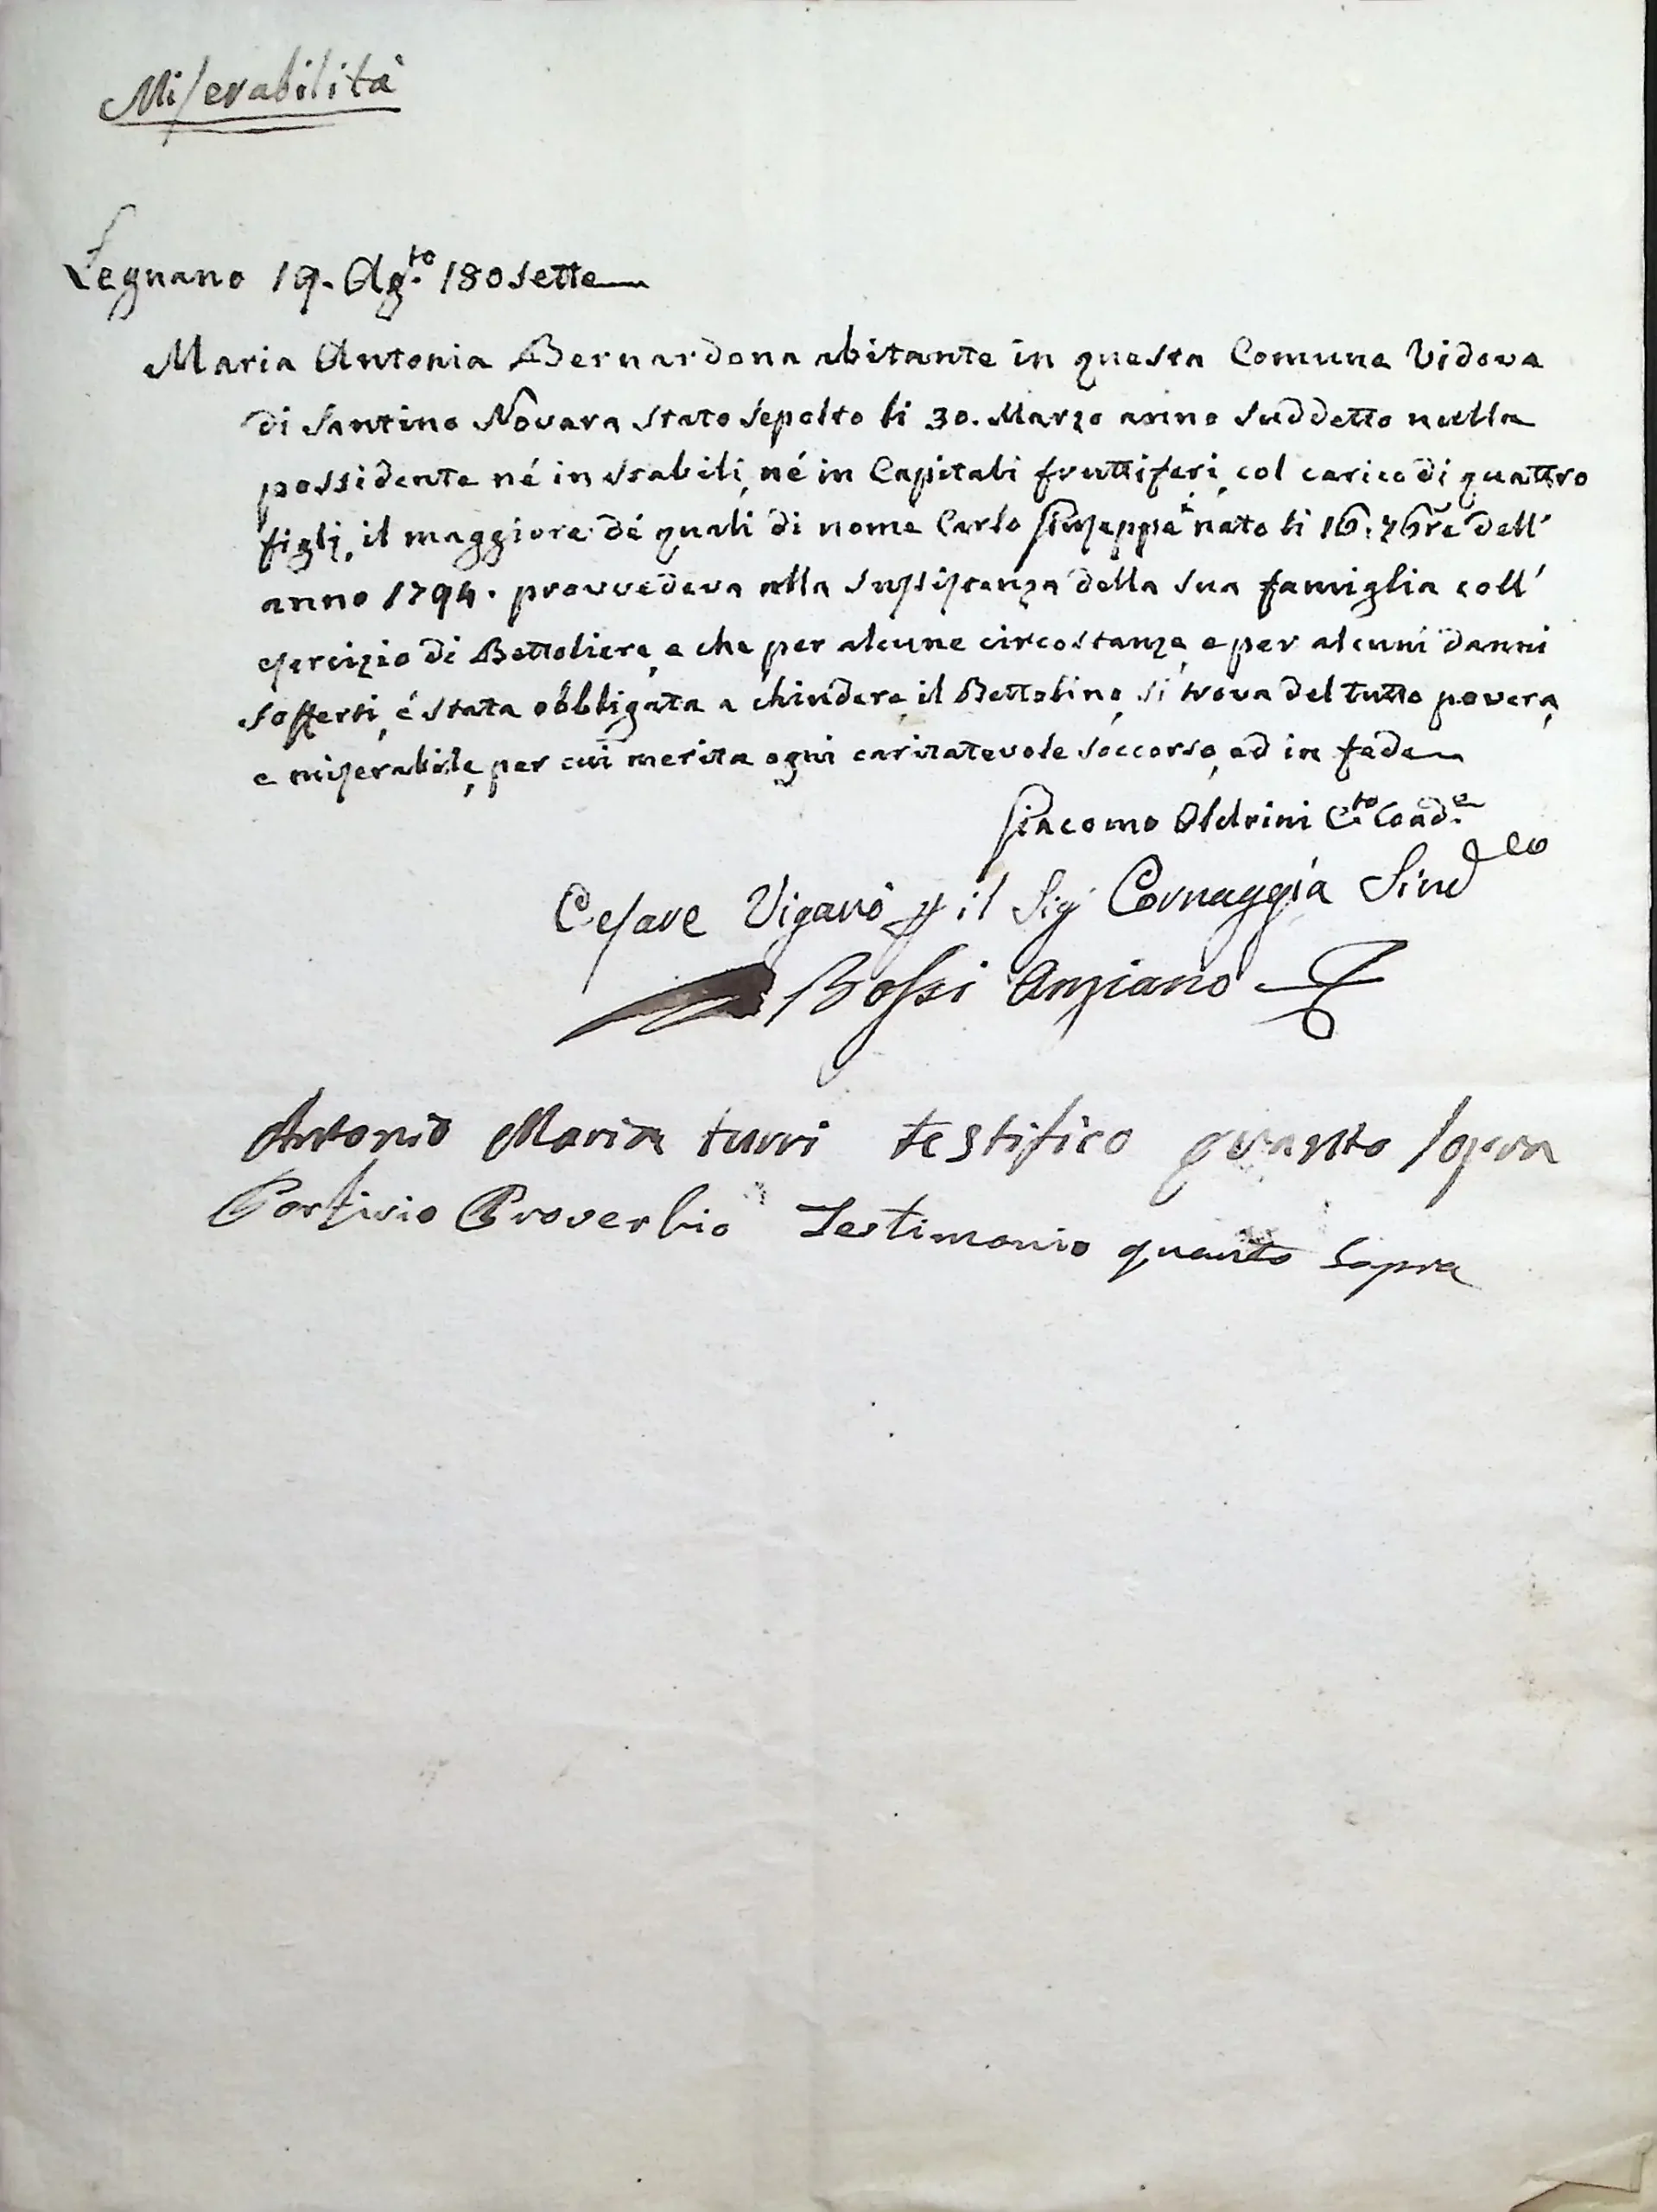 Miserabilità
Legnano 19. Ag.to 180sette
Maria Antonia Bernardona abitante in questa Comune Vidova
di Santino Novara stato sepolto li 30. Marzo anno suddetto nulla
possidente né in stabili, né in Capitali fruttiferi, col carico di quattro
figli, il maggiore dé quali di nome Carlo Giuseppe nato li 16. 7bre dell'
anno 1794. provvedeva alla sussistenza della sua famiglia coll'
esercizio di Bettoliere, e che per alcune circostanze, e per alcuni danni
sofferti, é stata obbligata a chiudere il Bettolino, si trova del tutto povera,
e miserabile, per cui merita ogni caritatevole soccorso, ed in fede
Giacomo Oldrini C.to Coad.e
Cesare Viganò p il Sig Cornaggia Sind
Bossi Anziano
Antonio Maria turri testifico quanto sopra
Proverbio Testimonio quanto sopra